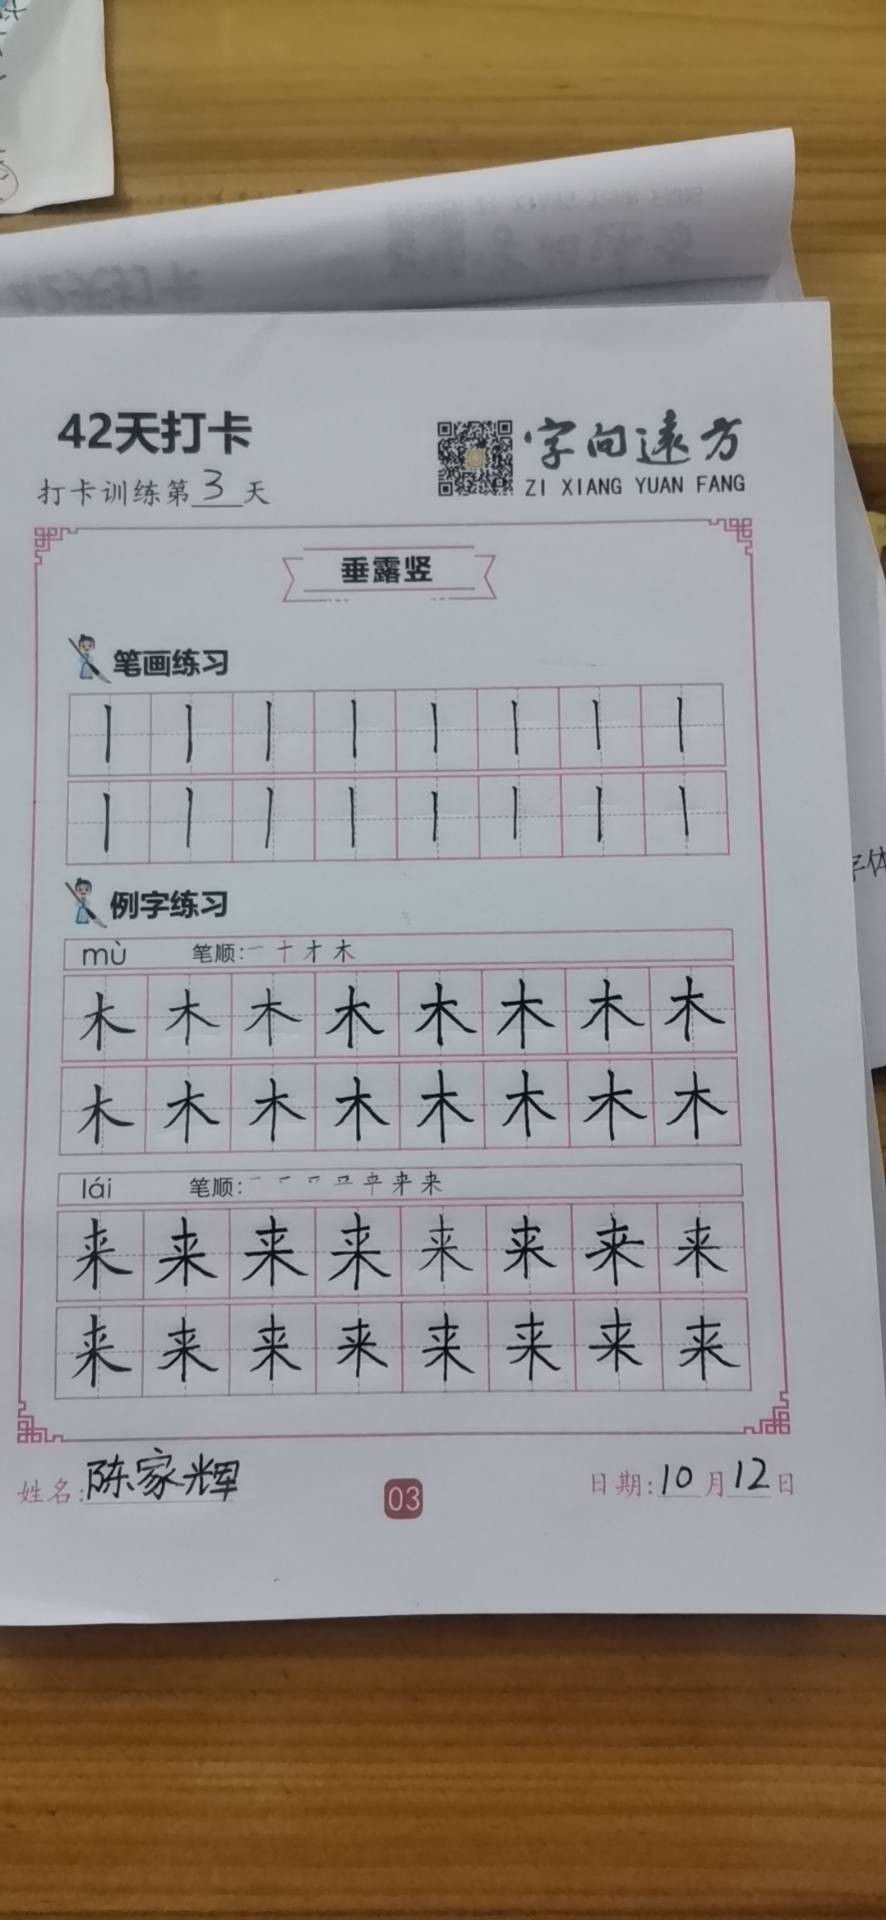 42天打卡
打卡训练第3天
字向远方
ZI XIANG YUAN FANG
垂露竖
笔画练习
例字练习
mù 笔顺:一 十 才 木
木 木 木 木 木 木 木 木
木 木 木 木 木 木 木 木
lái 笔顺:
来 来 来 来 来 来 来 来
来 来 来 来 来 来 来 来
姓名:陈家辉
03
日期:10月12日